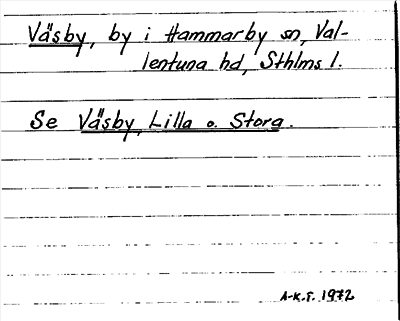 Väsby, by i Hammarby sn, Val-
lentuna hd, Sthlms l.
Se Väsby, Lilla o. Stora.
A-K.F. 1972